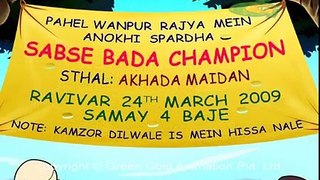 PAHEL WANPUR RAJYA MEIN
ANOKHI SPARDHA
SABSE BADA CHAMPION
STHAL: AKHADA MAIDAN
RAVIVAR 24TH MARCH 2009
SAMAY 4 BAJE
NOTE: KAMZOR DILWALE IS MEIN HISSA NALE
Green Gold Animation Pvt. Ltd